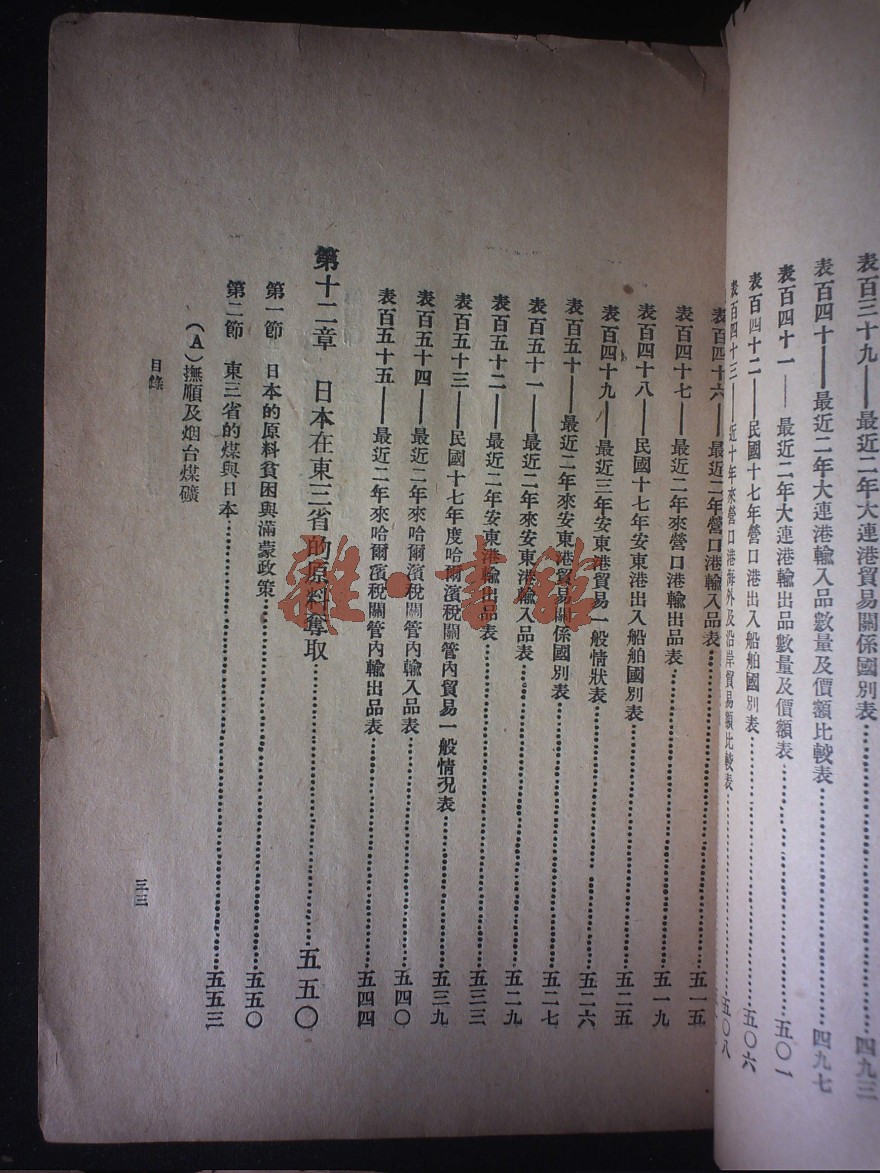 表百三十九——最近二年大連港貿易關係國別表……四九三
表百四十——最近二年大連港輸入品數量及價額比較表……四九七
表百四十一——最近二年大連港輸出品數量及價額表……五〇一
表百四十二——民國十七年營口港出入船舶國別表……五〇六
表百四十三——近十年來營口港海外及沿岸貿易額比較表……五〇八
表百四十六——最近二年營口港輸入品表……五一五
表百四十七——最近二年來營口港輸出品表……五一九
表百四十八——民國十七年安東港出入船舶國別表……五二五
表百四十九——最近三年安東港貿易一般情狀表……五二六
表百五十——最近二年來安東港貿易關係國別表……五二七
表百五十一——最近二年來安東港輸入品表……五二九
表百五十二——最近二年安東港輸出品表……五三三
表百五十三——民國十七年度哈爾濱稅關管內貿易一般情況表……五三九
表百五十四——最近二年來哈爾濱稅關管內輸入品表……五四〇
表百五十五——最近二年來哈爾濱稅關管內輸出品表……五四四
第十二章 日本在東三省的原料奪取……五五〇
第一節 日本的原料貧困與滿蒙政策……五五〇
第二節 東三省的煤與日本……五五三
（A）撫順及烟台煤礦
目錄
三三
雜·書館